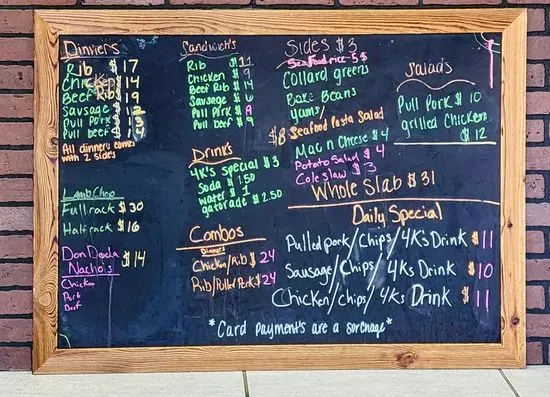 Dinners
Rib $17
Chicken $14
Beef Rib $19
Sausage $
Pull Pork $
Pull beef $14
All dinners comes
with 2 sides
Lamb Chop
Full rack $30
Half rack $16
Don Doela $14
Nacho's
Chicken
Pork
Beef
Sandwich's
Rib $11
Chicken $9
Beef Rib $14
Sausage $6
Pull Pork $9
Pull Beef $9
Drink's
4K's special $3
Soda $1.50
water $1
gatorade $2.50
Combos
Dinners
Chicken/Rib $24
Rib/Pulled Pork $24
Sides $3
Seafood rice - 5$
Collard greens
Bake Beans
Yams/
$8 Seafood Pasta Salad
Mac n Cheese $4
Potato Salad $4
Coleslaw $3
Whole Slab $31
Salads
Pull Pork $10
grilled Chicken
$12
Daily Special
Pulled pork/Chips/4K's Drink $11
Sausage/Chips/4Ks Drink $10
Chicken/chips/4Ks Drink $11
*Card Payment's are a sorchage*